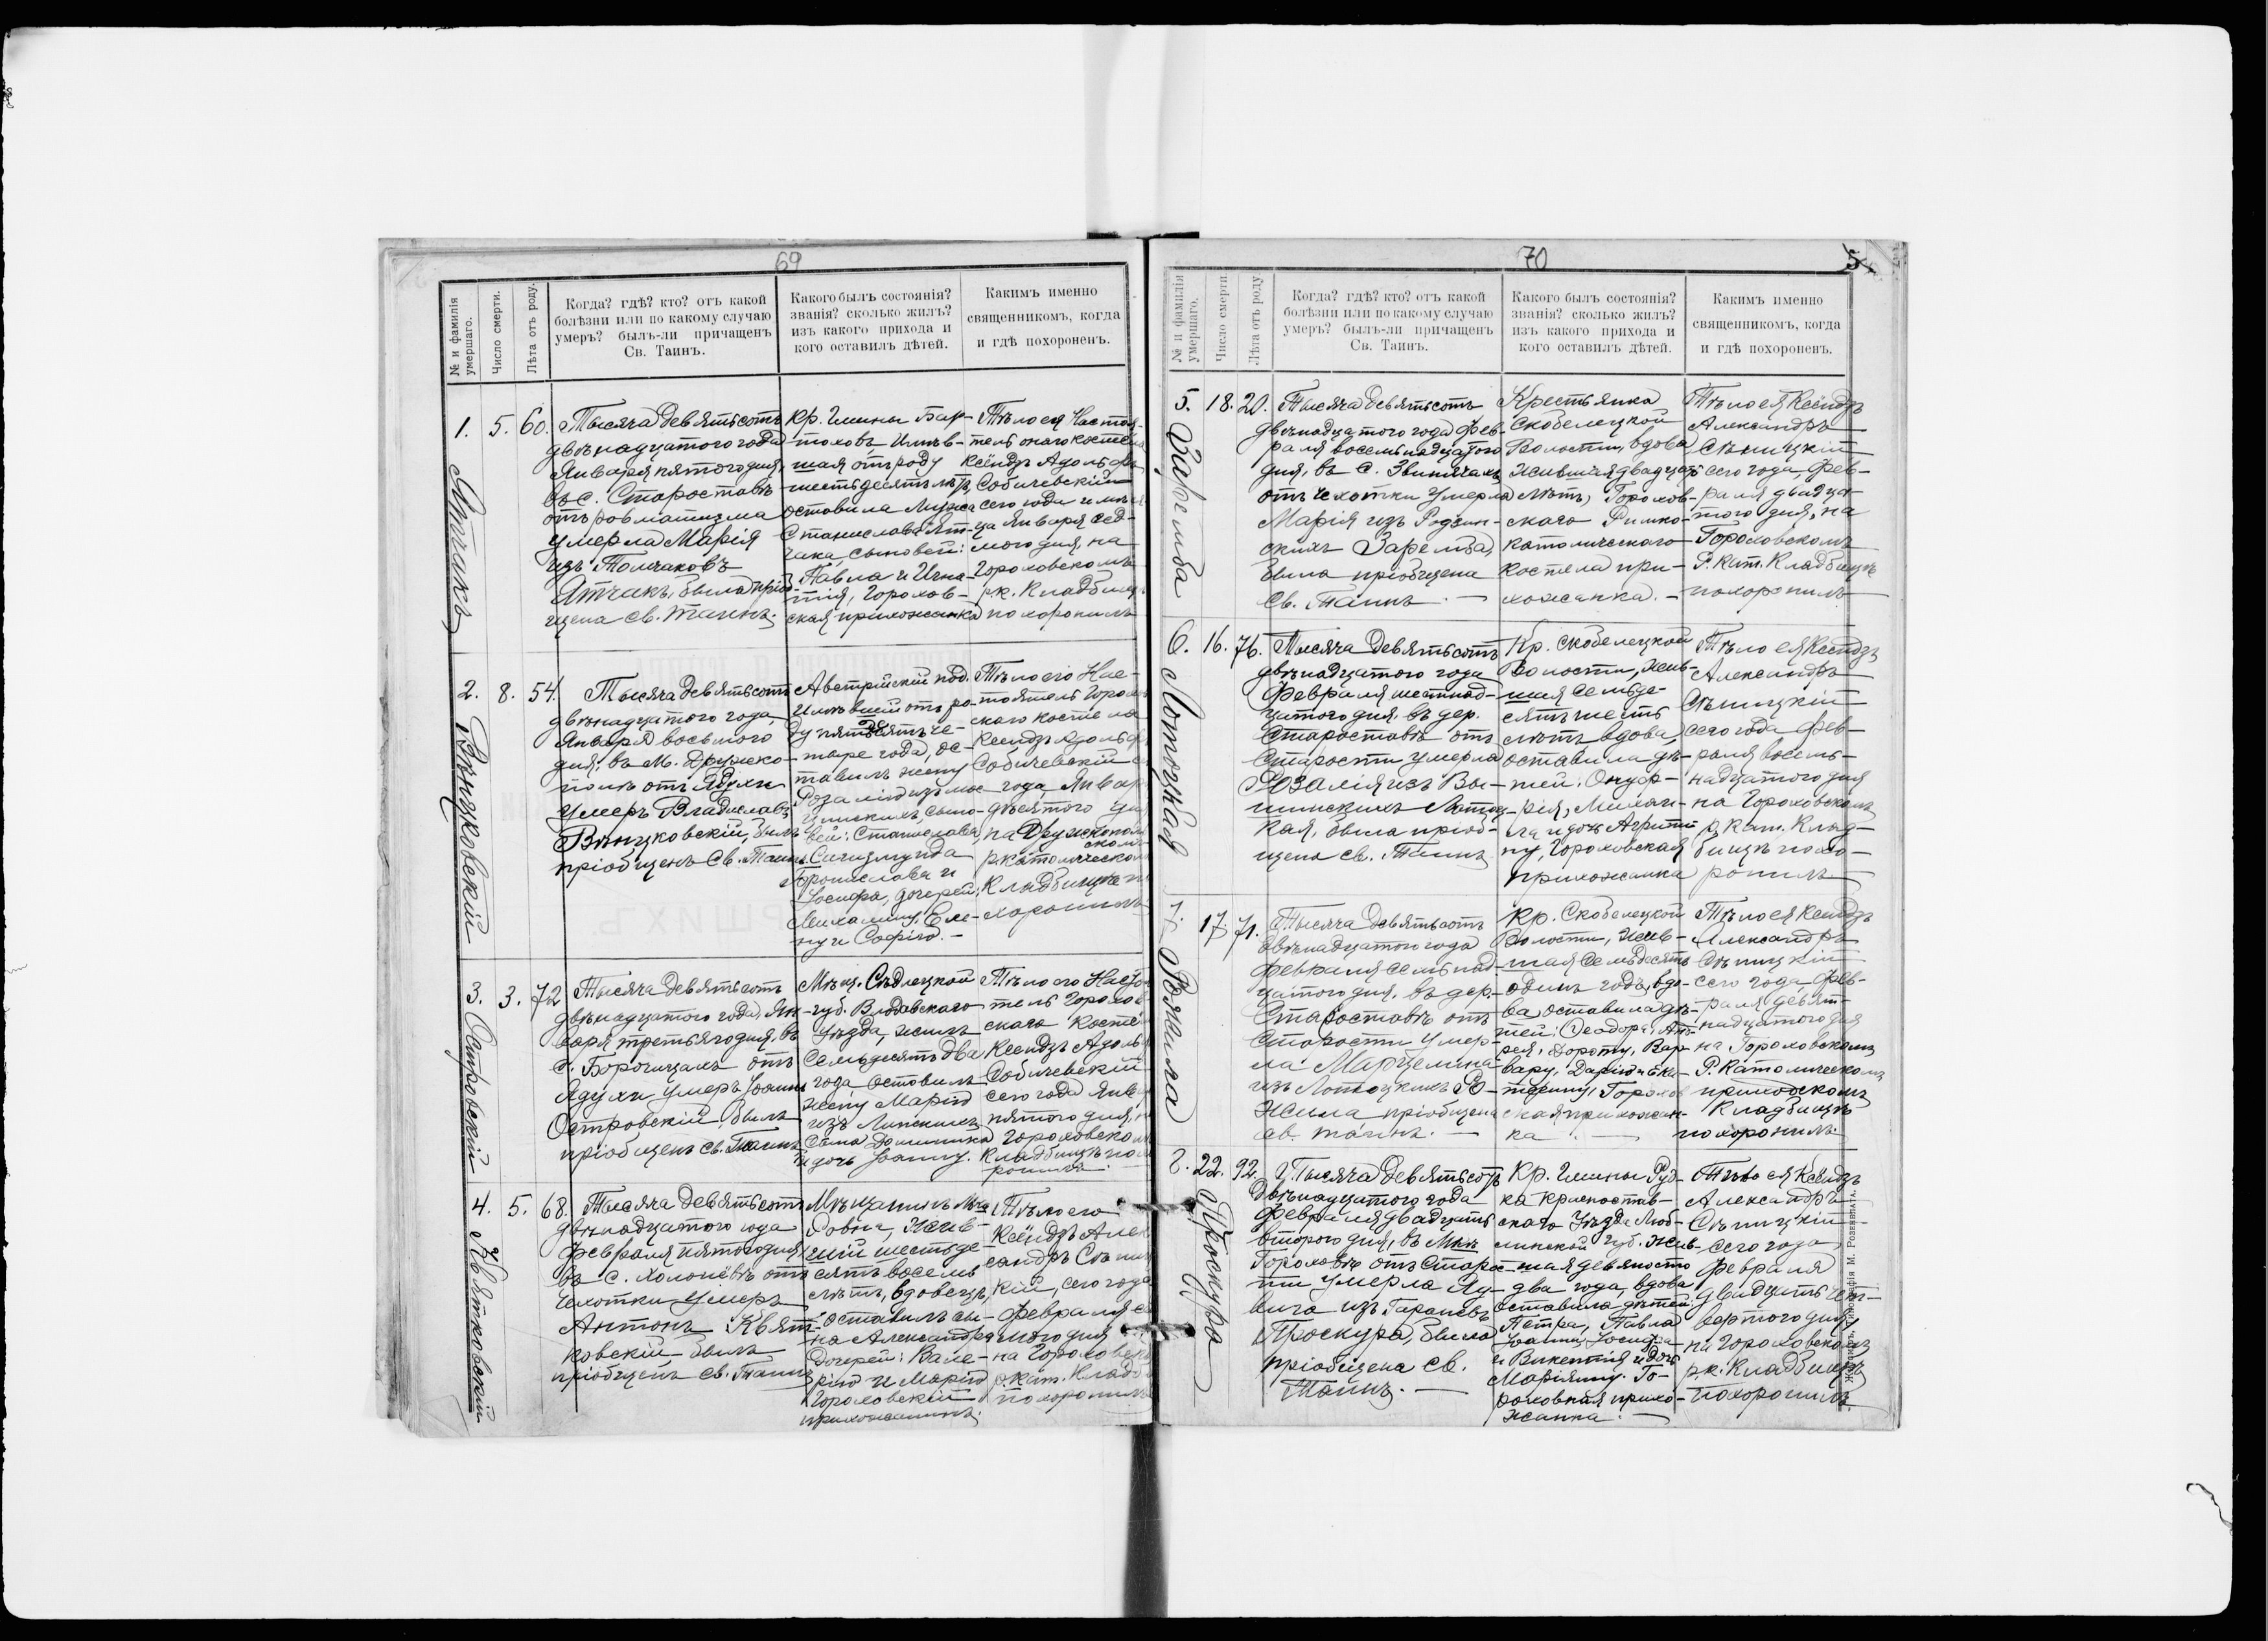 69
№ и фамилія умершаго.
Число смерти.
Лѣта отъ роду.
Когда? гдѣ? кто? отъ какой
болѣзни или по какому случаю
умеръ? былъ-ли причащенъ
Св. Таинъ.
Какого былъ состоянія?
званія? сколько жилъ?
изъ какого прихода и
кого оставилъ дѣтей.
Какимъ именно
священникомъ, когда
и гдѣ похороненъ.
1. Ятчакъ
5.
60.
Тысяча девятьсотъ
двѣнадцатого года
Января пятого дня,
въ с. Староставѣ
отъ ревматизма
умерла Марія
изъ Толчаковъ
Ятчакъ, была пріоб-
щена св. таинъ.
Кр. гмины
имѣв-
шая отъ роду
шестьдесятъ лѣтъ,
оставила мужа
Станислава Ят-
чака сыновей:
Павла и Игна-
тія, Горохов-
ская прихожанка
Тѣло ея Настоя-
тель онаго костела
Ксёндзъ Адольфъ
Собичевскій
сего года и мѣся-
ца Января сед-
мого дня, на
Гороховскомъ
р.к. Кладбищѣ
похоронилъ
2. Вѣнцковскій
8.
54.
Тысяча девятьсотъ
двѣнадцатого года,
Января восьмого
дня, въ м. Дружко-
полѣ отъ Ядухи
умеръ Владиславъ
Вѣнцковскій, былъ
пріобщенъ Св. Таинъ
Австрійскій под.
имѣвшій отъ ро-
ду пятьдесятъ че-
тыре года, ос-
тавилъ жену
Розалію изъ
сыно-
вей: Станислава,
Сигизмунда
Бронислава и
Іосифа, дочерей:
Михалину, Еле-
ну и Софію. —
Тѣло его Нас-
тоятель Горохов-
скаго костела
Ксендзъ Адольфъ
Собичевскій
года, Января
девятого дня
на Дружкополь-
скомъ
р.католическомъ
Кладбищѣ по-
хоронилъ
3. Островскій
3.
72
Тысяча девятьсотъ
двѣнадцатого года, Ян-
варя третьяго дня, въ
с. Борочицахъ отъ
Ядухи умеръ Іоаннъ
Островскій, былъ
пріобщенъ св. Таинъ
Мѣщ. Сѣдлецкой
губ. Влодавскаго
Уѣзда, жилъ
семьдесятъ два
года оставилъ
жену Марію
изъ Липскихъ,
сына Доминика
и дочь Іоанну.
Тѣло его Настоя-
тель Горохов-
скаго Костёла
Ксендзъ Адольфъ
Собичевскій
сего года Января
пятого дня, на
Гороховскомъ
Кладбищѣ похо-
ронилъ.
4. Квятковскій
5.
68.
Тысяча девятьсотъ
двѣнадцатого года
Февраля пятого дня,
въ с. Холонёвѣ отъ
чахотки умеръ
Антонъ Квят-
ковскій былъ
пріобщенъ св. Таинъ
Мѣщанинъ м-ка
Ровна, жив-
шій шестьде-
сятъ восемь
лѣтъ, вдовецъ,
оставилъ сы-
на Александра
дочерей: Вале-
рію и Марію
Гороховскій
прихожанинъ.
Тѣло его
Ксёндзъ Алек-
сандръ Сѣниц-
кій, сего года
Февраля се-
дмого дня
на Гороховскомъ
р.кат. Кладб.
похоронилъ
70
5
№ и фамилія умершаго.
Число смерти.
Лѣта отъ роду.
Когда? гдѣ? кто? отъ какой
болѣзни или по какому случаю
умеръ? былъ-ли причащенъ
Св. Таинъ.
Какого былъ состоянія?
званія? сколько жилъ?
изъ какого прихода и
кого оставилъ дѣтей.
Какимъ именно
священникомъ, когда
и гдѣ похороненъ.
5. Заремба
18.
20.
Тысяча девятьсотъ
двѣнадцатого года Фев-
раля восемьнадцатого
дня, въ с. Звинячахъ
отъ чахотки умерла
Марія изъ Родзин-
скихъ Заремба,
была пріобщена
Св. Таинъ. —
Крестьянка
Скобелецкой
Волости, вдова
жившая двадцать
лѣтъ, Горохов-
скаго Римко-
католическаго
костела при-
хожанка. —
Тѣло ея Ксёндзъ
Александръ
Сѣницкій
сего года, Фев-
раля двадца-
того дня, на
Гороховскомъ
Р. Кат. Кладбищѣ
похоронилъ
6. Лотоцкая
16.
76.
Тысяча девятьсотъ
двѣнадцатого года
Февраля шестнад-
цатого дня, въ дер.
Староставѣ отъ
старости умерла
Розалія изъ Вы-
шинскихъ Лотоц-
кая, была пріоб-
щена св. Таинъ
Кр. Скобелецкой
Волости, жив-
шая семьде-
сятъ шесть
лѣтъ вдова,
оставила дѣ-
тей: Онуф-
рія, Михаи-
ла и дочь Агрипи-
ну, Гороховская
прихожанка
Тѣло ея Ксёндзъ
Александръ
Сѣницкій
сего года Фев-
раля восемь-
надцатого дня
на Гороховскомъ
р. кат. Клад-
бищѣ похо-
ронилъ
7. Рожила
17.
71.
Тысяча девятьсотъ
двѣнадцатого года
Февраля семьнад-
цатого дня, въ дер.
Староставѣ отъ
старости умер-
ла Марцелина
изъ Лотоцкихъ Ро-
жила пріобщена
св. таинъ. —
Кр. Скобелецкой
Волости, жив-
шая семьдесятъ
одинъ годъ, вдо-
ва, оставила дѣ-
тей: Ѳеодора, Анд-
рея, Дороту, Вар-
вару, Дарію и Ека-
терину, Горохов-
ская прихожан-
ка. —
Тѣло ея Ксендзъ
Александръ
Сѣницкій
сего года Фев-
раля девят-
надцатого дня
на Гороховскомъ
Р. Католическомъ
приходскомъ
Кладбищѣ
похоронилъ.
8. Проскура
22.
92.
Тысяча девятьсотъ
Двѣнадцатого года
Февраля двадцать
второго дня, въ Мѣс.
Гороховѣ отъ старос-
ти умерла Лу-
вича изъ Гараневъ
Проскура, была
пріобщена св.
Таинъ. —
Кр. гмины Руд-
ка Красностав-
скаго Уѣзда Люб-
линской губ. жив-
шая девяносто
два года, вдова
оставила дѣтей:
Петра, Павла
Іоанна, Іосифа
и Викентія и дочь
Маріянну. Го-
роховская прихо-
жанка. —
Тѣло ея Ксёндзъ
Александръ
Сѣницкій
сего года,
Февраля
двадцать чет-
вертого дня
на Гороховскомъ
р.к. Кладбищѣ
похоронилъ
Типографія М. Розенблата.